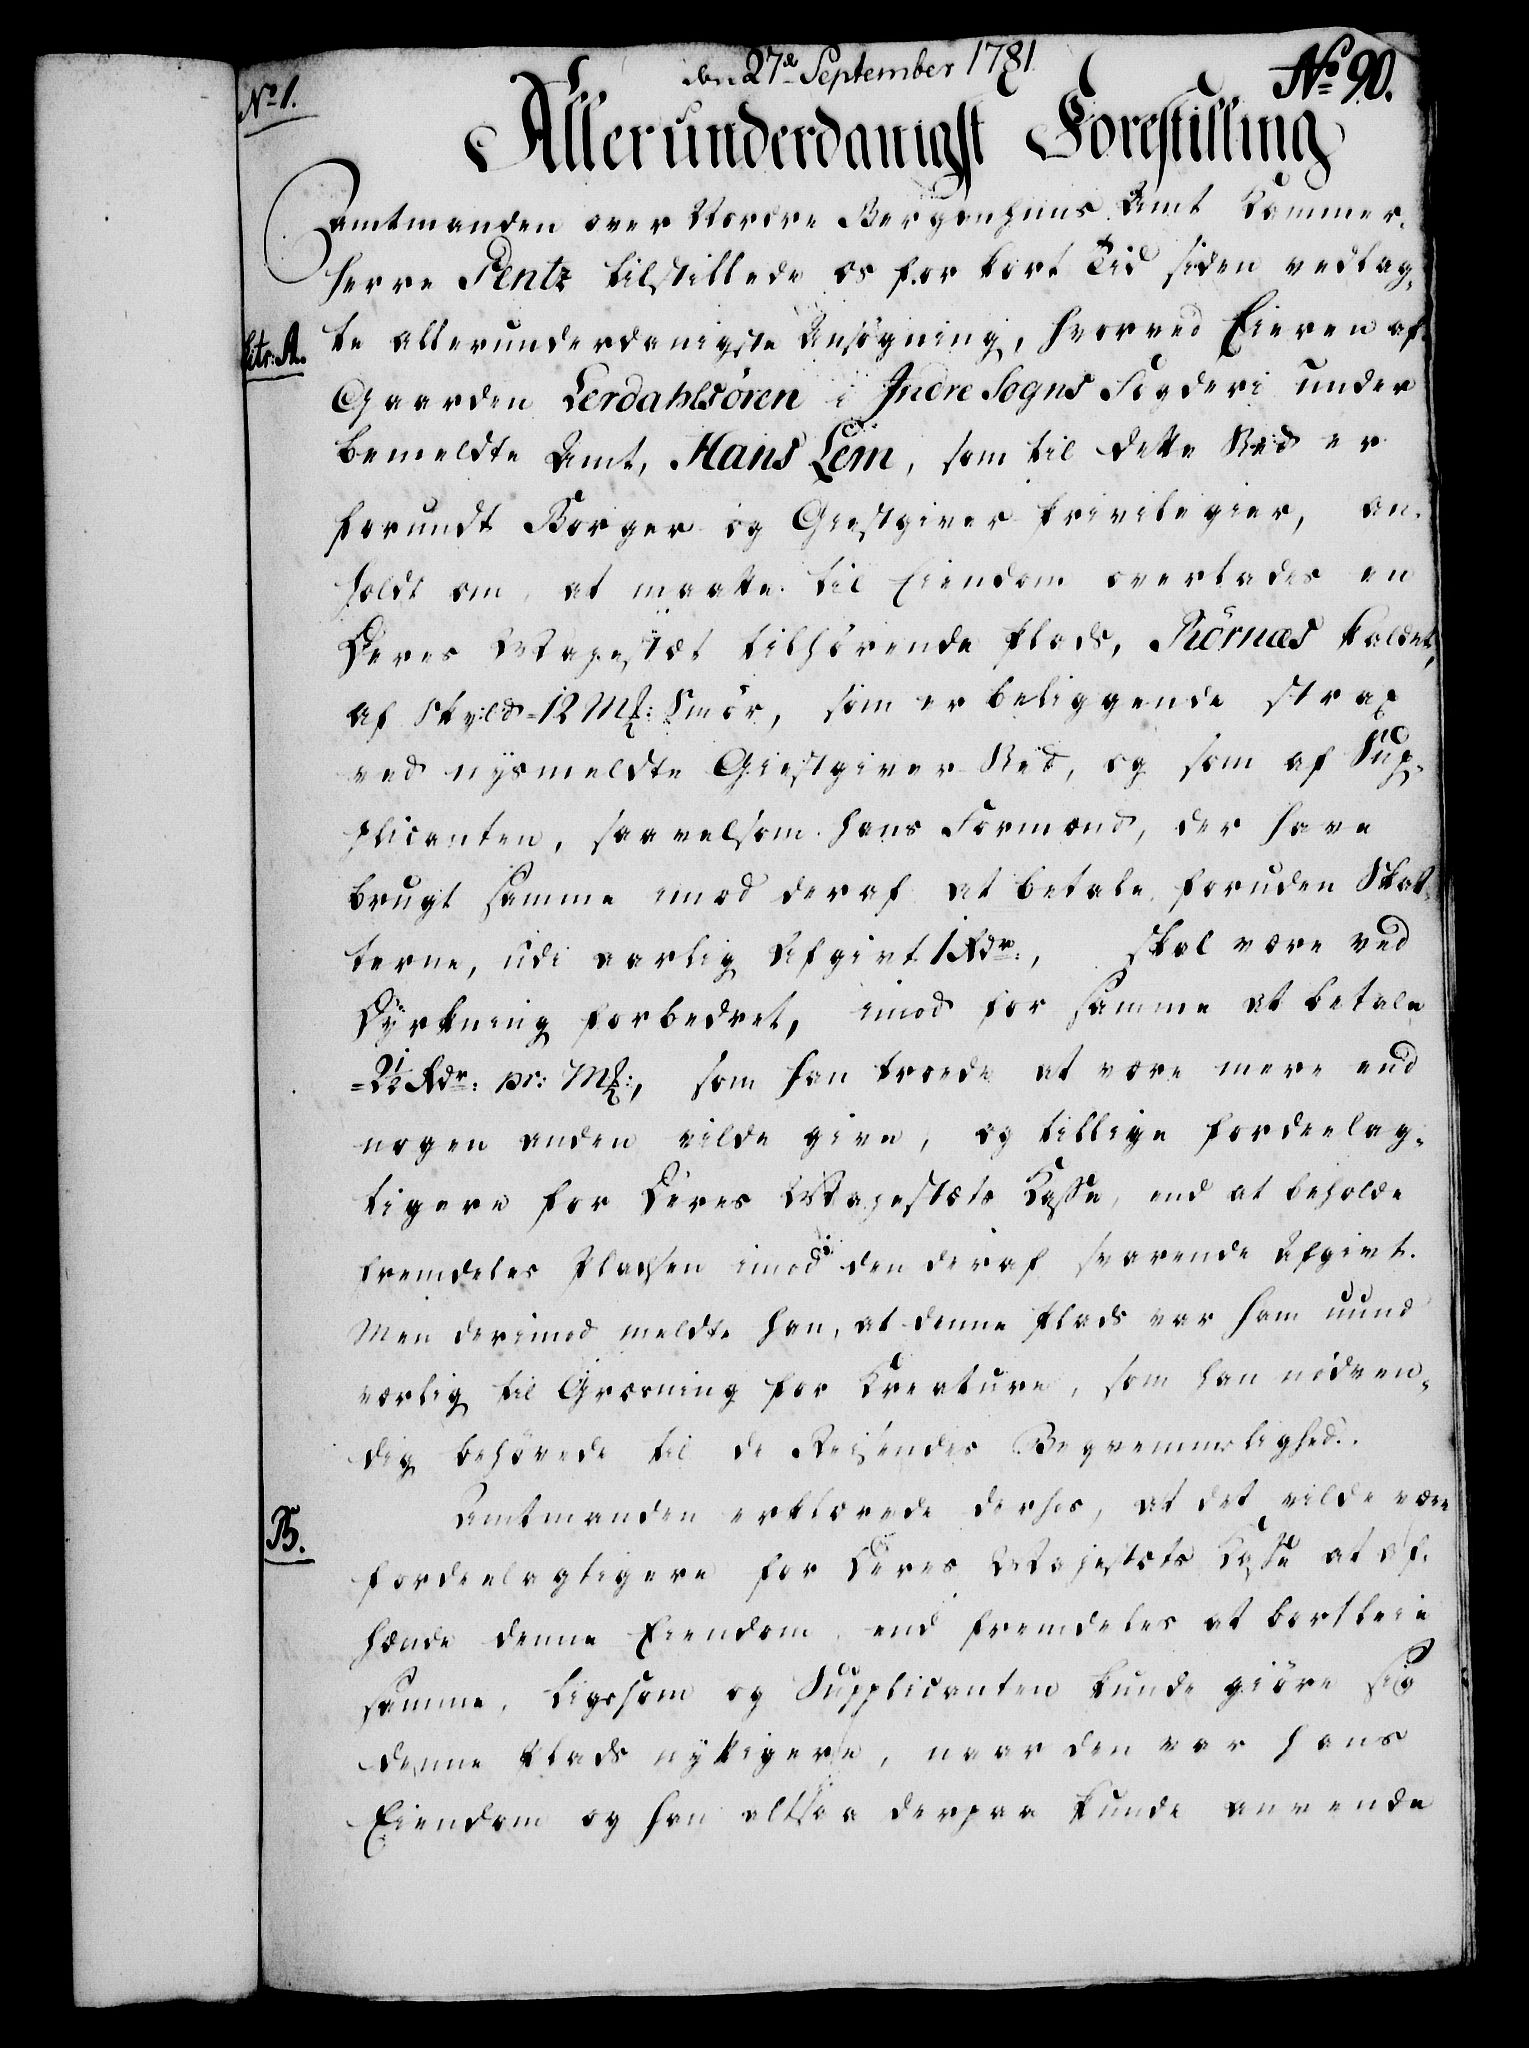 den 27de September 1781.
No 90.
No 1.
Allerunderdanigst Forestilling
Amtmanden over Nordre Bergenhuus Amt Kammer-
herre Pentz tilstillede os for kort Tid siden vedlag-
Litr: A.
te allerunderdanigste Ansøgning, hvorved Eieren af
Gaarden Lerdahlsören i Indre Sogns Fogderi under
bemeldte Amt, Hans Lem, som til dette Sted er
forundt Borger og Giestgiver Privilegier, an-
holdt om, at maatte til Eiendom overlades en
Deres Majestæt tilhörende Plads, Rörnæs kaldet,
af Skyld = 12 Mk: Smör, som er beliggende strax
ved nysmeldte Giestgiver Sted, og som af Sup-
plicanten, saavelsom hans Formænd, der have
brugt samme imod deraf at betale, foruden Skat-
terne, udi aarlig Afgivt 1 Rdr:, skal være ved
Dyrkning forbedret, imod for samme at betale
= 2½ Rdr: pr: Mk:, som han troede at være mere end
nogen anden vilde give, og tillige fordeelag-
tigere for Deres Majestæts Kasse, end at beholde
fremdeles Pladsen imod den deraf svarende Afgivt.
Men derimod meldte han, at denne Plads var ham uund-
værlig til Græsning for Kreature, som han nödven-
dig behövede til de Reisendes Beqvemmelighed.
Amtmanden erklærede derhos, at det vilde være
B.
fordeelagtigere for Deres Majestæts Kasse at af-
hænde denne Eiendom, end fremdeles at bortleie
samme, ligesom og Supplicanten kunde giöre sig
denne Plads nyttigere, naar den var hans
Eiendom og han altsaa derpaa kunde anvende